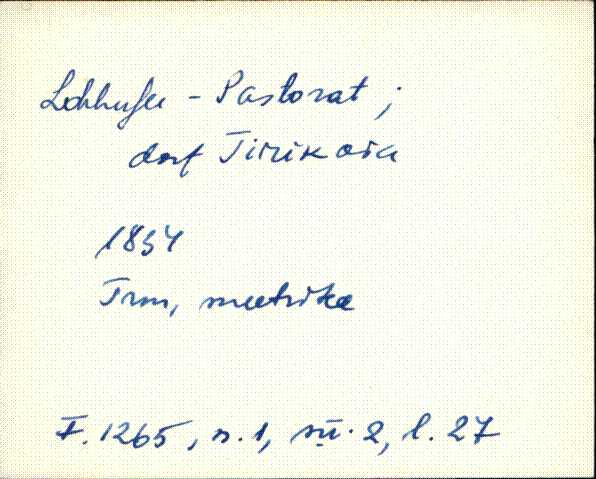 Lohhusu - Pastorat ;
dorf Tirikoia
1854
Trm, meetrika
F. 1265, n. 1, sü. 2, l. 27